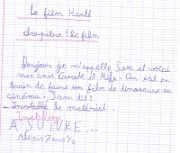 Le film Hanté
chapitre 1 le film
Bonjour je m'appelle Sam et voici
mes amis et . On est en
train de faire un film de dinosaure au
cinéma. Sam dit :
- le matériel.
A SUIVRE...